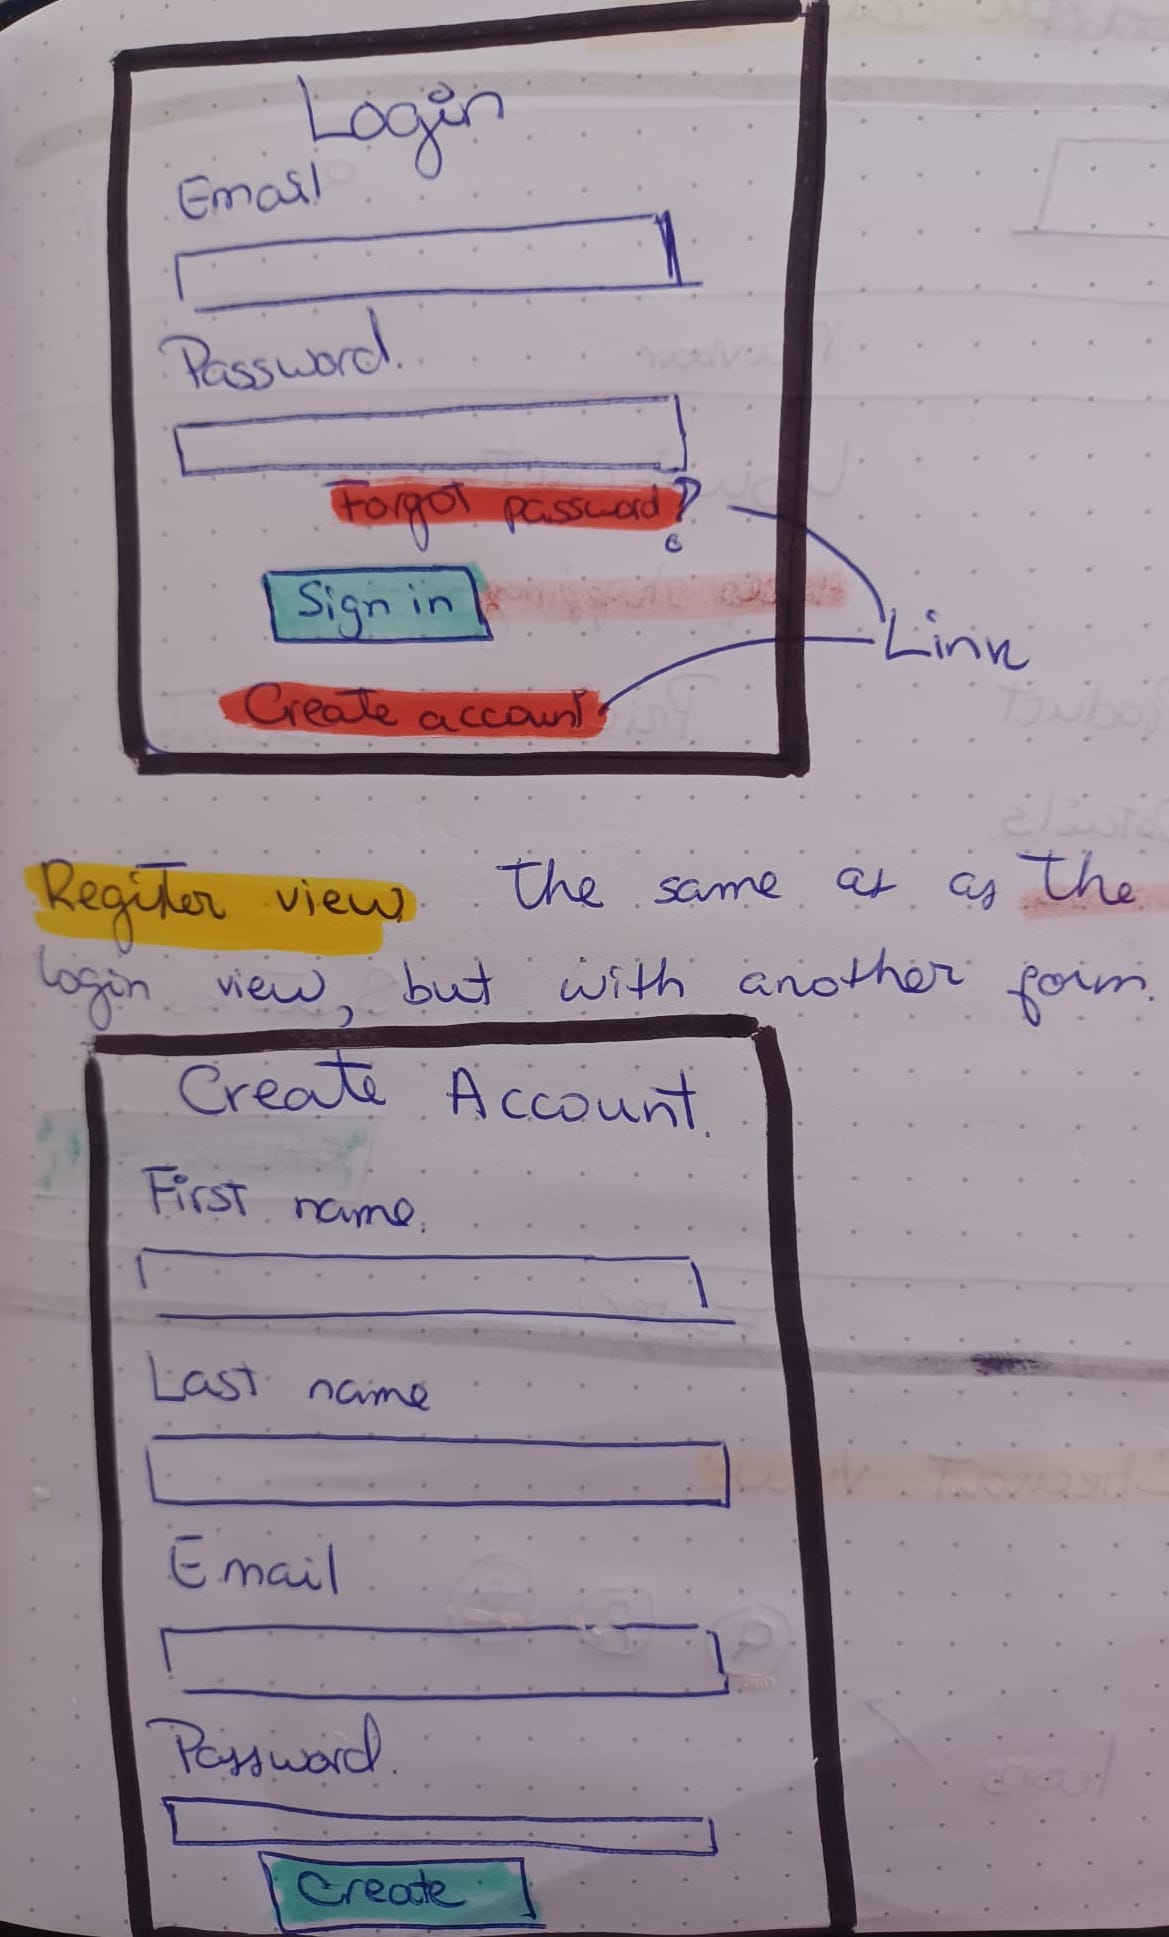 Login
Email
Password.
Forgot password?
Sign in
Link
Create account
Regiter view the same as as the
login view, but with another form.
Create Account.
First name.
Last name
Email
Password.
Create